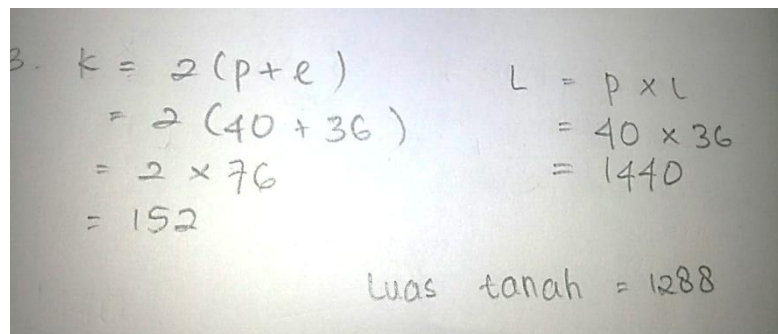 3. K = 2 (p + l)
= 2 (40 + 36)
= 2 × 76
= 152
L = p × l
= 40 × 36
= 1440
Luas tanah = 1288